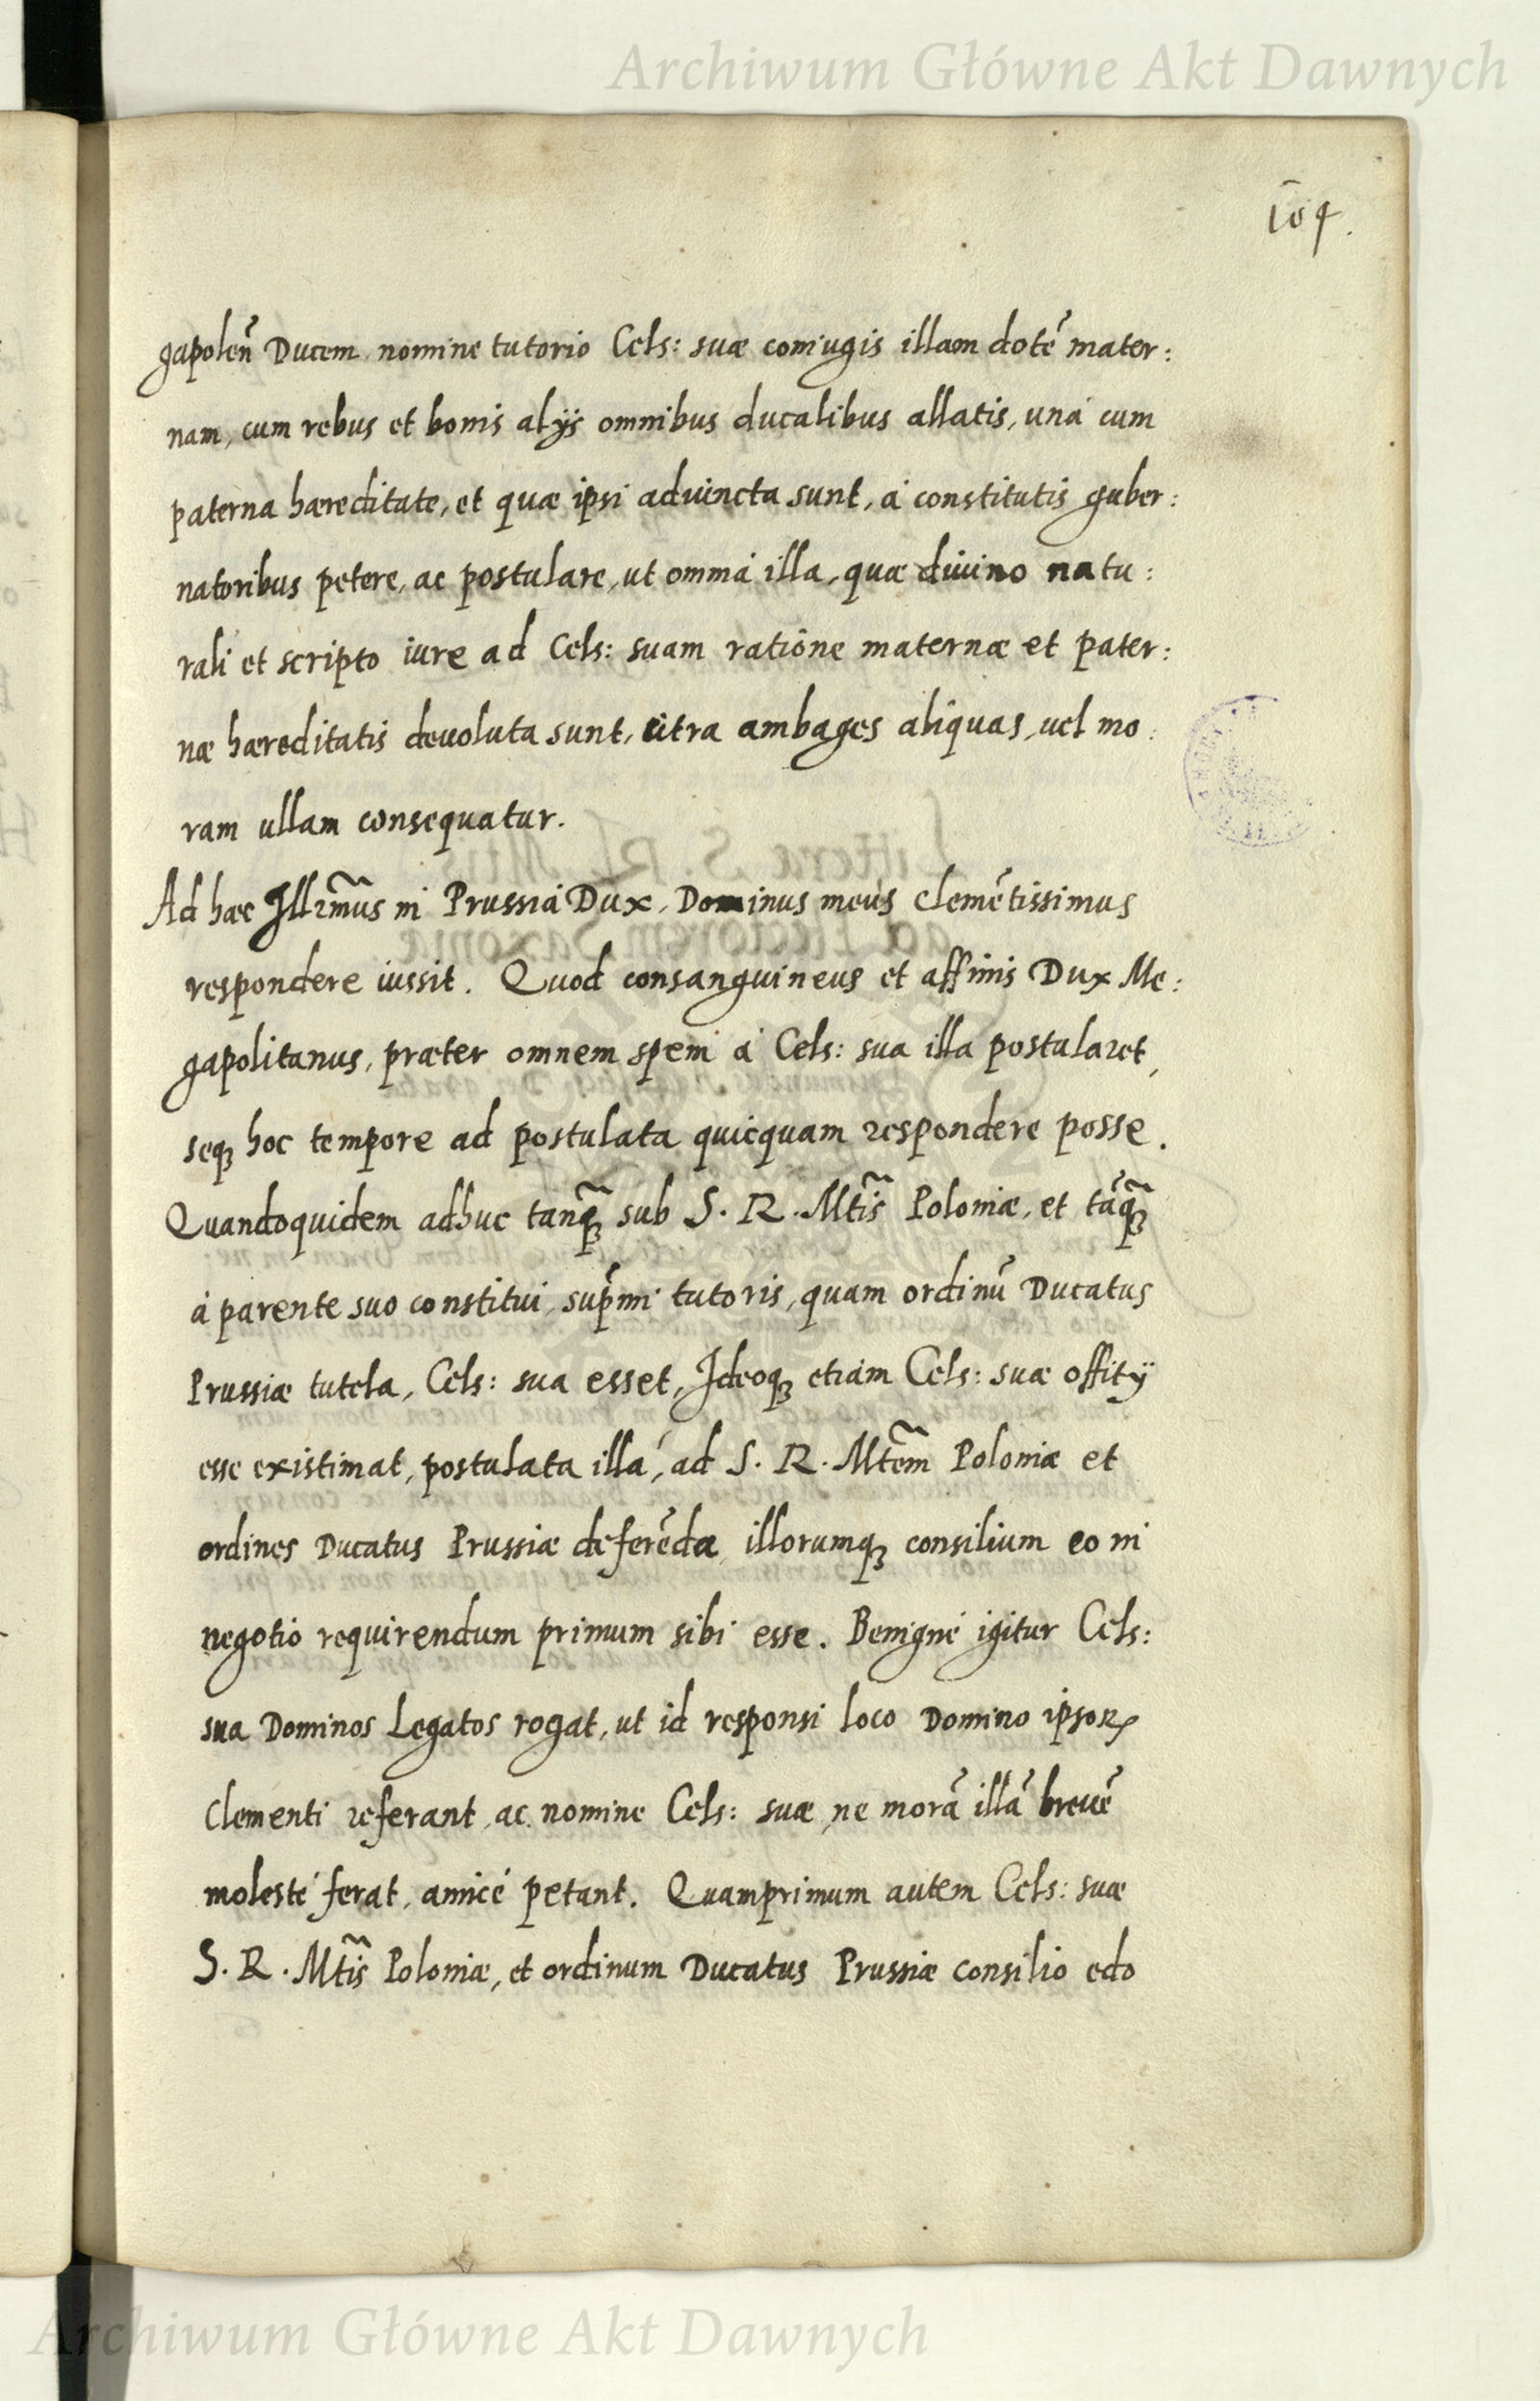 Archiwum Główne Akt Dawnych
104.
gapolen̄ Ducem nomine tutorio Cels: suæ coniugis illam dotē mater:
nam, cum rebus et bonis alijs omnibus ducalibus allatis, unà cum
paterna hæreditate, et quæ ipsi aduincta sunt, à constitutis guber:
natoribus petere, ac postulare, ut omnia illa, quæ diuino natu:
rali et scripto iure ad Cels: suam ratione maternæ et pater:
næ hæreditatis deuoluta sunt, citra ambages aliquas, uel mo:
ram ullam consequatur.
Ad hæc Illr̃mus in Prussia Dux, Dominus meus clemētissimus
respondere iussit. Quod consanguineus et affinis Dux Me:
gapolitanus, præter omnem spem à Cels: sua illa postularet,
seq́ hoc tempore ad postulata quicquam respondere posse.
Quandoquidem adhuc tanq̃ sub S. R. Mtĩs Poloniæ, et tāq̃
à parente suo constitui, sup̄mi tutoris, quam ordinū Ducatus
Prussiæ tutela, Cels: sua esset, Ideoq́ etiam Cels: suæ offitÿ
esse existimat, postulata illa, ad S. R. Mtẽm Poloniæ et
ordines Ducatus Prussiæ deferēda, illorumq́ consilium eo in
negotio requirendum primum sibi esse. Benigné igitur Cels:
sua Dominos Legatos rogat, ut id responsi loco Domino ipsoꝝ
Clementi referant, ac nomine Cels: suæ, ne morā illā breuē
molesté ferat, amicé petant. Quamprimum autem Cels: suæ
S. R. Mtĩs Poloniæ, et ordinum Ducatus Prussiæ consilio edo
Archiwum Główne Akt Dawnych